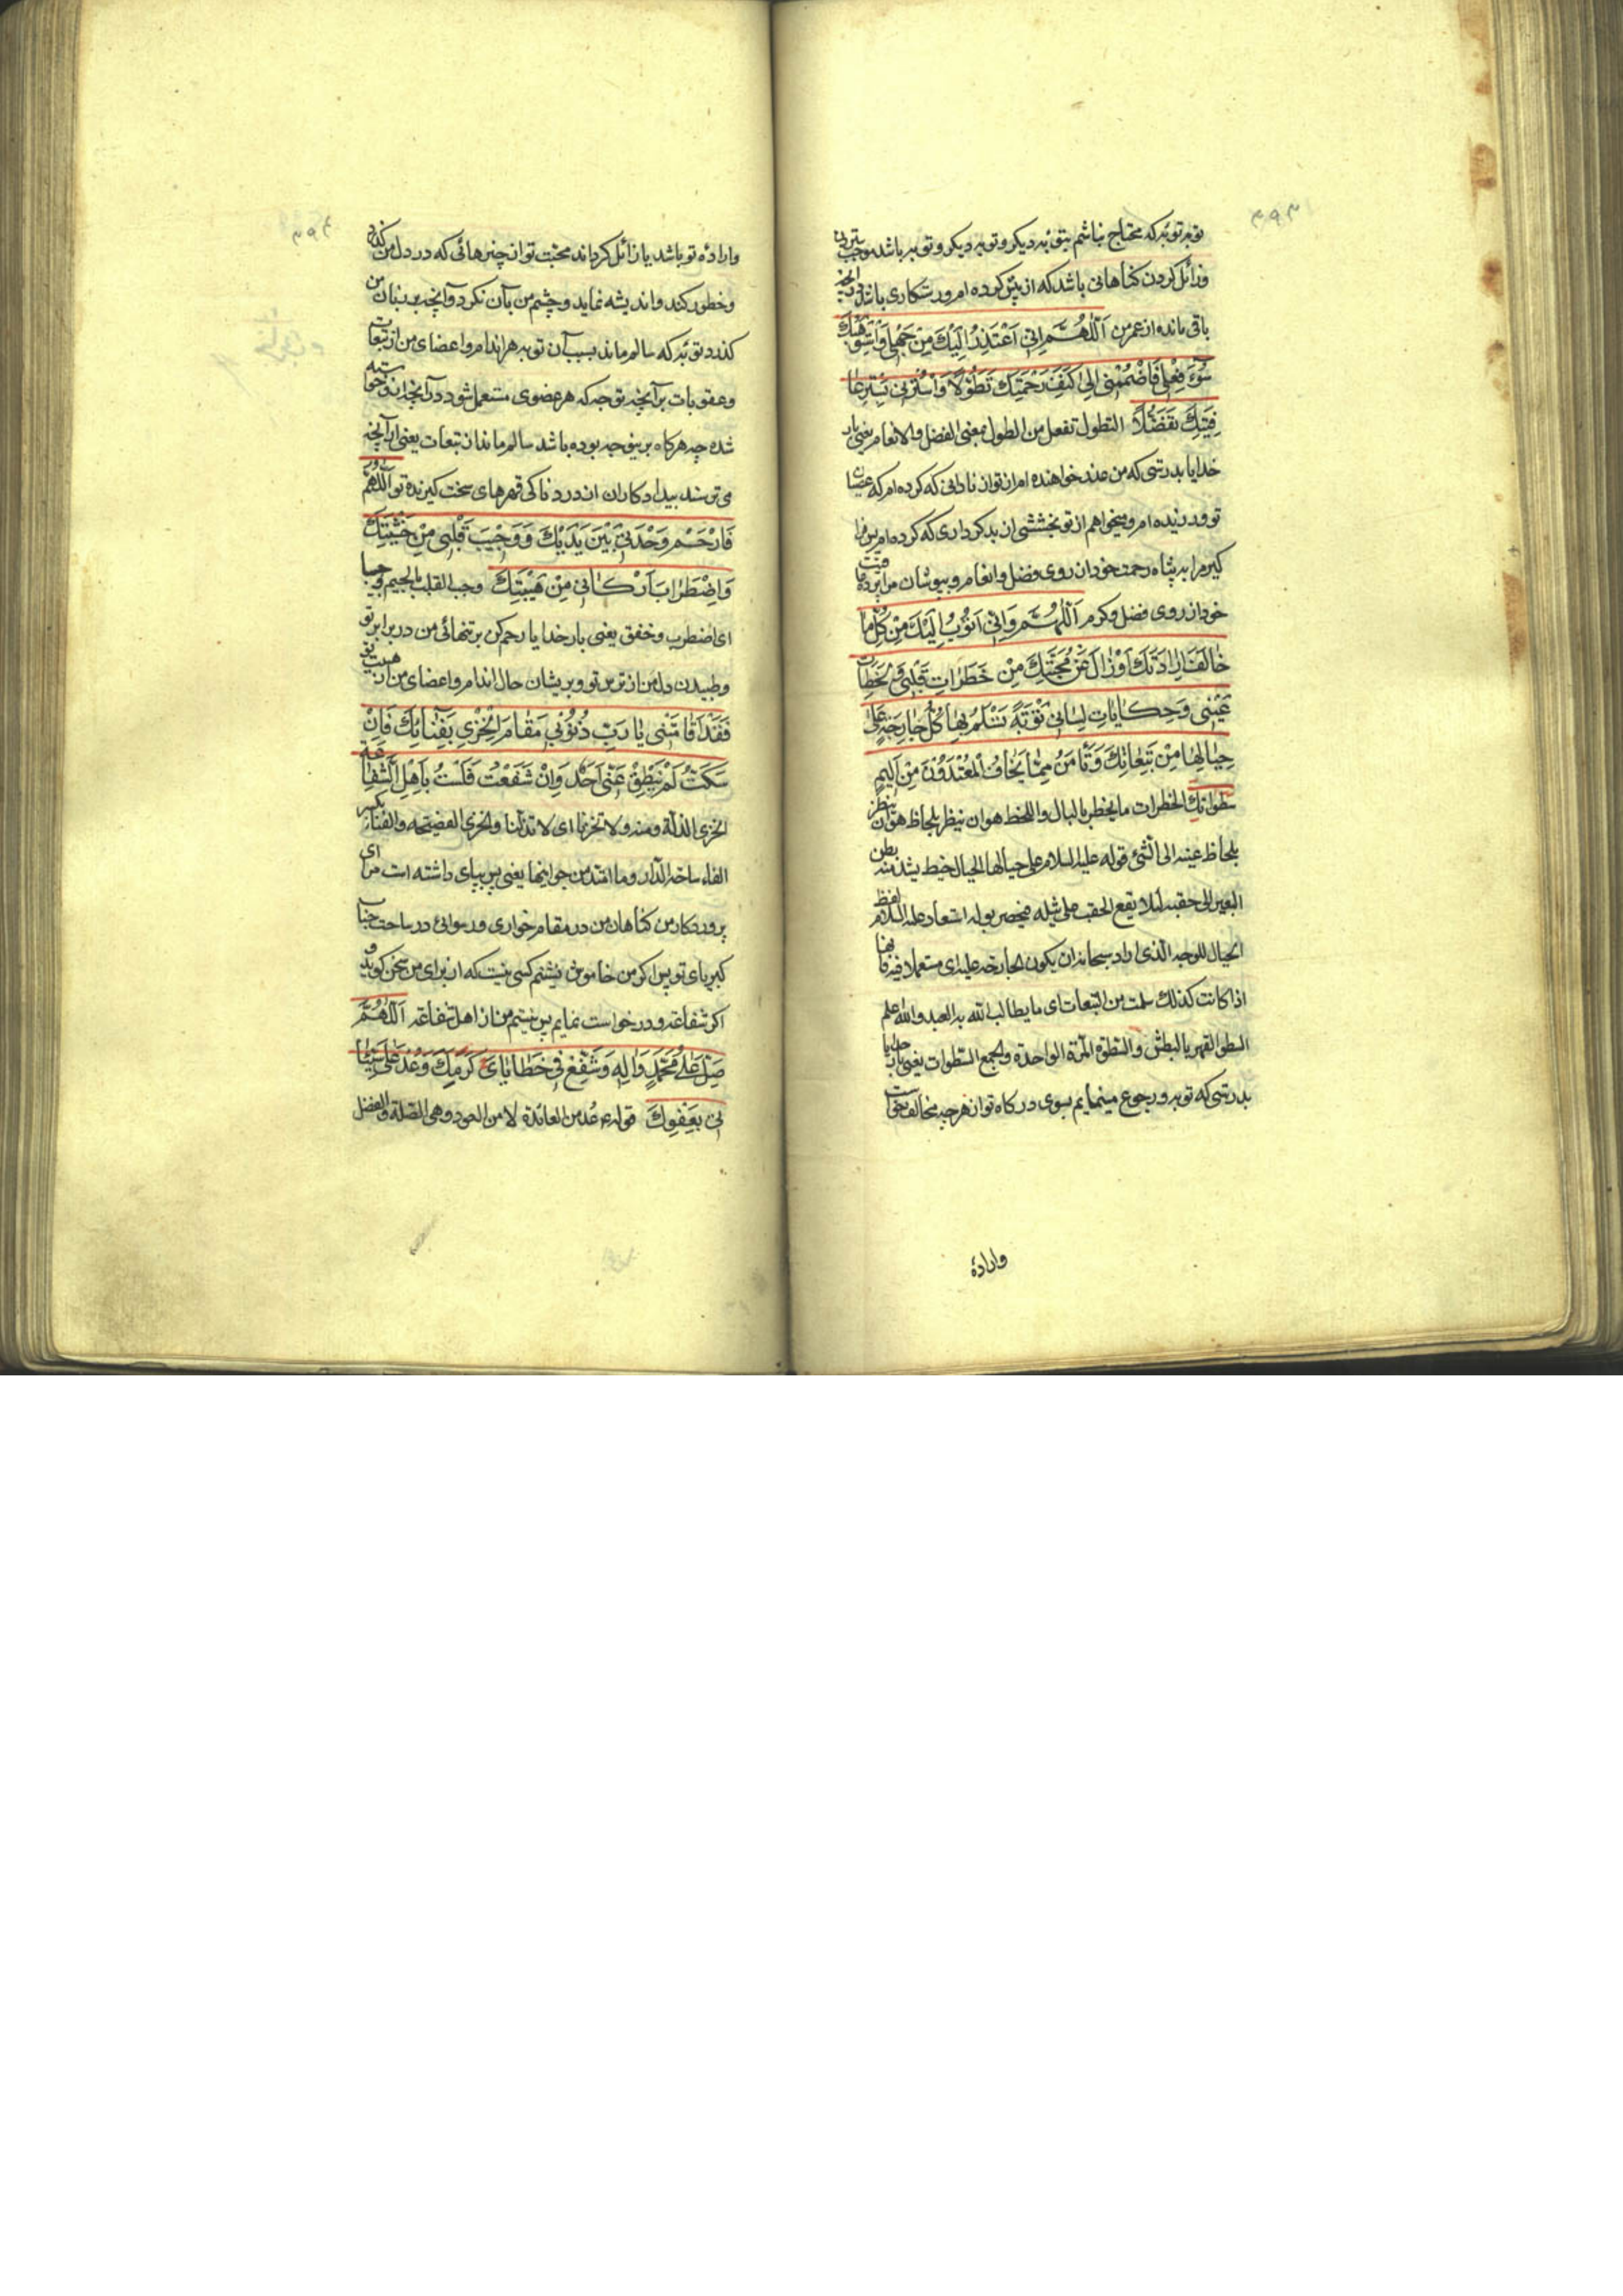 ۳۹۳
توبهٔ توبهٔ که محتاج نباشم بتوبهٔ دیکر و توبه دیکر و توبه باشد موجب
و زائل کردن کناهانی باشد که از پیش کرده ام و رستکاری باشد در آنچه
باقی مانده از عمر من اَللّهُمَّ اِنّی اَعْتَذِرُ اِلَیْكَ مِنْ جَهْلی وَاَسْتَوْهِبُكَ
سُوٓءَ فِعْلی فَاضْمُمْنی اِلیٰ كَنَفِ رَحْمَتِكَ تَطَوُّلاً وَاسْتُرْنی بِسِتْرِ عٰا
فِیَتِكَ تَفَضُّلاً التطول تفعل من الطول بمعنی الفضل والانعام یعنی بار
خدایا بدرستی که من عذر خواهنده ام از تو از نادانی که کرده ام که عصیان
تو ورزیده ام و میخواهم از تو بخششی از بد کرداری که کرده ام پس فرا
کیر مرا به پناه رحمت خود از روی فضل و انعام و بپوشان مرا بپرده عافیت
خود از روی فضل و کرم اَللّهُمَّ وَاِنّی اَتُوبُ اِلَیْكَ مِنْ كُلِّ مٰا
خٰالَفَ اِرٰادَتَكَ اَوْ زٰالَ عَنْ مَحَبَّتِكَ مِنْ خَطَرٰاتِ قَلْبی وَلَحَظٰاتِ
عَیْنی وَحِكٰایٰاتِ لِسٰانی تَوْبَةً تَسْلَمُ بِهٰا كُلُّ جٰارِحَةٍ عَلیٰ
حِیٰالِهٰا مِنْ تَبِعٰاتِكَ وَتَأْمَنُ مِمّٰا یَخٰافُ الْمُعْتَدُونَ مِنْ اَلیمِ
سَطَوٰاتِكَ الخطرات ما یخطر بالبال واللحظ هو ان ینظر بلحاظ هو ان ینظر
بلحاظ عینه الی الشئ قوله علیه السلام علی حیالها الحیال خیط یشد من بطن
البعیر الی حقبه لئلا یقع الحقب علی ثیله استعار علیه السلام لفظ
الحیال للوجه الذی اراد سبحانه ان یکون الجارحة علیه ای مستعملا فیه فانها
اذا کانت کذلك سلمت من التبعات ای ما یطالب الله به العبد والله اعلم
السطو القهر بالبطش والسطوة المرة الواحدة والجمع السطوات یعنی بار خدایا
بدرستی که توبه و رجوع مینمایم بسوی درکاه تو از هرچه مخالف خواست
وارادهٔ
۳۹۴
و ارادهٔ تو باشد یا زائل کرداند محبت تو از چیزهائی که در دل من کذرد
و خطور کند و اندیشه نماید و چشم من بآن نکرد و آنچه بر زبان من
کذرد توبهٔ که سالم ماند بسبب آن توبه هر اندام و اعضای من از تبعات
و عقوبات بر آنچه توجه که هر عضوی مستعمل شود در آنچه از و خواسته
شده چه هرکاه برینوجه بوده باشد سالم ماند از تبعات یعنی از آنچه
می ترسند بیدادکاران از دردناکی قهرهای سخت کیرنده تو اَللّهُمَّ
فَارْحَمْ وَحْدَتی بَیْنَ یَدَیْكَ وَوَجیبَ قَلْبی مِنْ خَشْیَتِكَ
وَاضْطِرٰابَ اَرْكٰانی مِنْ هَیْبَتِكَ وجب القلب بالجیم وجیبا
ای اضطرب و خفق یعنی بار خدایا رحم کن بر تنهائی من در برابر تو
و طپیدن دل من از ترس تو و پریشان حال اندام و اعضای من از هیبت تو
فَقَدْ اَقٰامَتْنی یٰا رَبِّ ذُنُوبی مَقٰامَ الْخِزْیِ بِفِنٰائِكَ فَاِنْ
سَكَتُّ لَمْ یَنْطِقْ عَنّی اَحَدٌ وَاِنْ شَفَعْتُ فَلَسْتُ بِاَهْلِ الشَّفٰاعَةِ
الخزی الذلة ومنه ولا تخزنا ای لا تذلنا والخزی الفضیحه والفناء بکسر
الفاء ساحة الدار وما امتد من جوانبها یعنی پس بپای داشته است مرا ای
پروردکار من کناهان من در مقام خواری و رسوائی در ساحت جناب
کبریای تو پس اکر من خاموش نشینم کسی نیست که از برای من سخن کوید و
اکر شفاعة و درخواست نمایم پس نیستم من از اهل شفاعة اَللّهُمَّ
صَلِّ عَلیٰ مُحَمَّدٍ وَاٰلِهِ وَشَفِّعْ فی خَطٰایٰایَ كَرَمَكَ وَعُدْ عَلیٰ سَیِّئٰا
تی بِعَفْوِكَ قوله ع عد من العائدة لا من العود وهی الصلة والفضل